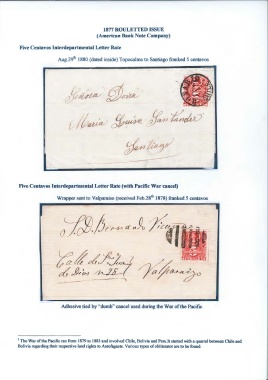 1877 ROULETTED ISSUE
(American Bank Note Company)
Five Centavos Interdepartmental Letter Rate
Aug 29th 1880 (dated inside) Topocalma to Santiago franked 5 centavos
Señora Doña
Maria Luisa Santander
Santiago
Five Centavos Interdepartmental Letter Rate (with Pacific War cancel)
Wrapper sent to Valparaiso (received Feb 28th 1878) franked 5 centavos
S. D. Bernardo Vice
Calle de S. Juan
de Dios n. 25
Valparaizo
Adhesive tied by "dumb" cancel used during the War of the Pacific
1 The War of the Pacific ran from 1879 to 1883 and involved Chile, Bolivia and Peru. It started with a quarrel between Chile and
Bolivia regarding their respective land rights to Antofagasta. Various types of obliterator are to be found.